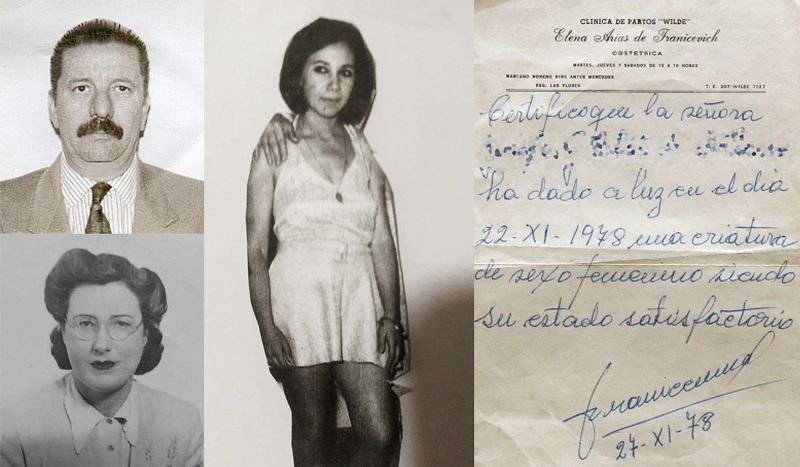 CLINICA DE PARTOS "WILDE"
Elena Arias de Franicevich
OBSTETRICA
MARTES, JUEVES Y SABADOS DE 15 A 18 HORAS
MARIANO MORENO 6165 ANTES MERCEDES
ESQ. LAS FLORES T. E. 207-WILDE 7127
Certifico que la señora
ha dado a luz en el día
22-XI-1978 una criatura
de sexo femenino siendo
su estado satisfactorio
27-XI-78